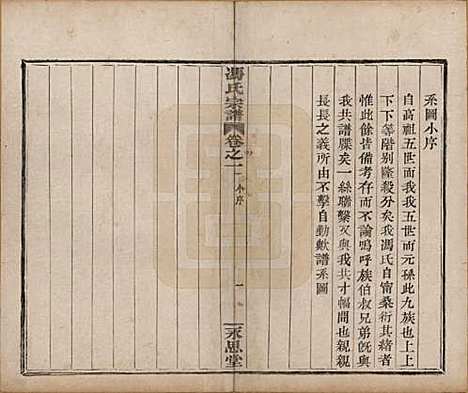 系圖小序
自高祖五世而我我五世而元孫此九族也上上
下下等階别斷殺分矣我馮氏自甯桑衍其緒者
惟此餘皆備考存而不論嗚呼族伯叔兄弟旣與
我共譜牒矣一絲聯繫又與我共才幅間也親親
長長之義所由不擊自動歟譜系圖
馮氏宗譜
卷之一
小序
一
永思堂